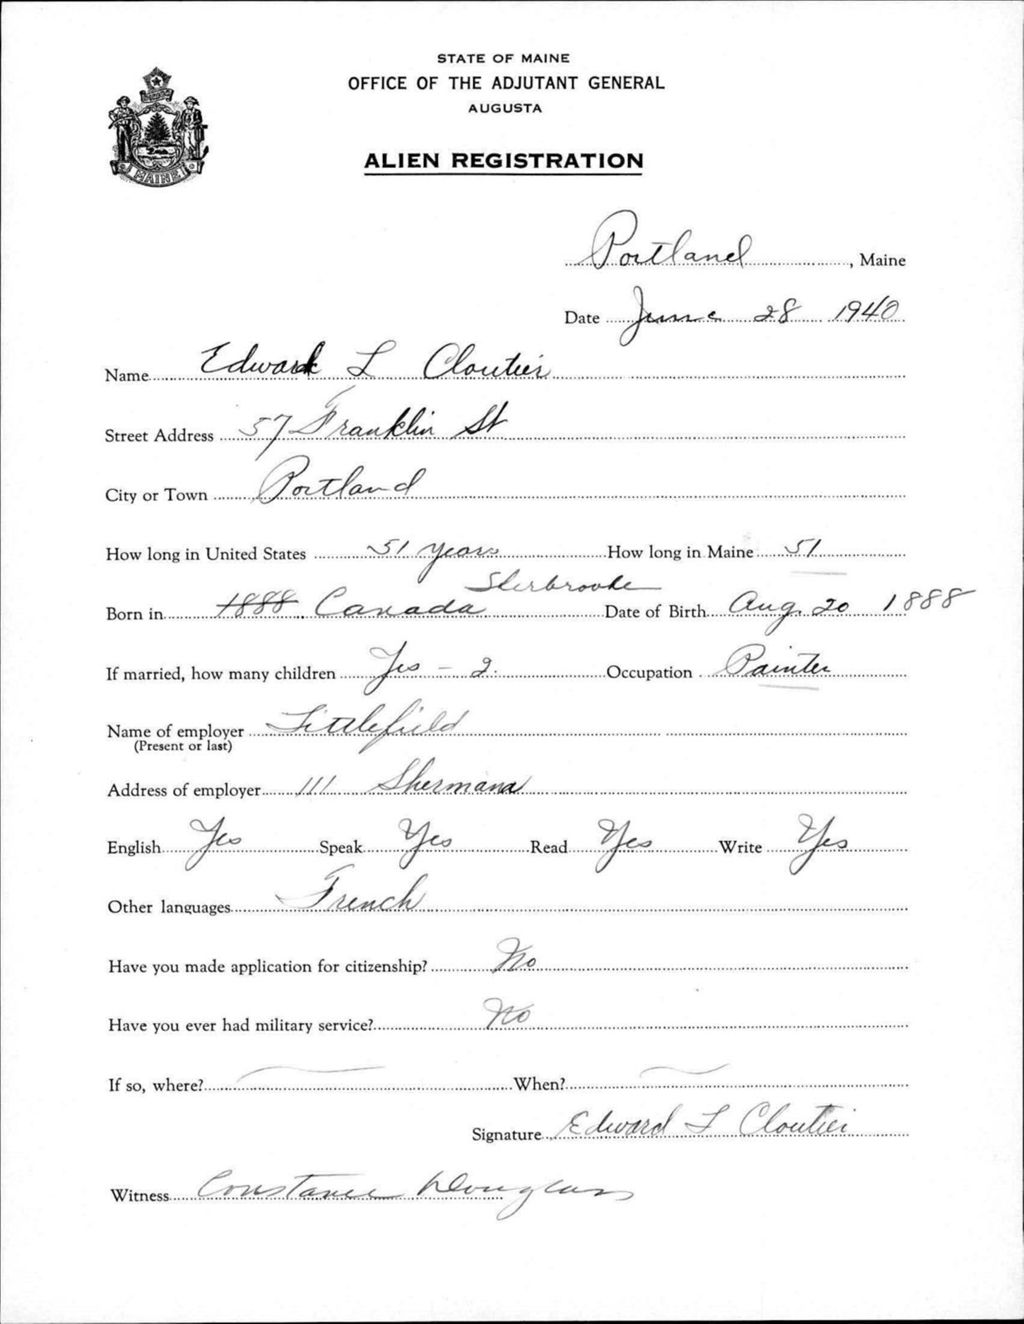 STATE OF MAINE
OFFICE OF THE ADJUTANT GENERAL
AUGUSTA
ALIEN REGISTRATION
MAINE
Portland, Maine
Date June 28 1940
Name Edward L Cloutier
Street Address 57 Franklin St
City or Town Portland
How long in United States 51 years How long in Maine 51
Sherbrooke
Born in 1888 Canada Date of Birth Aug. 20 1888
If married, how many children Yes - 2. Occupation Painter
Name of employer Littlefield
(Present or last)
Address of employer 111 Shermana
English Yes Speak Yes Read Yes Write Yes
Other languages French
Have you made application for citizenship? No
Have you ever had military service? No
If so, where? — When? —
Signature Edward L Cloutier
Witness Constance Douglass